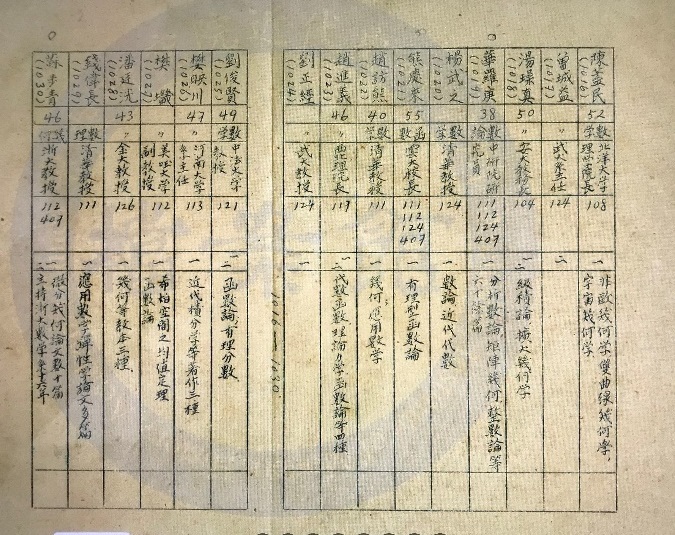 陳藎民 (1016) 52 數學 北洋大學理學院長 108 一 非歐幾何學,雙曲線幾何學,宇宙幾何學
曾城益 (1017) 〃 武大系主任 124 二
湯璪真 (1018) 50 〃 安大教務長 104 二 級積論 擴大幾何學
華羅庚 (1019) 38 數論 中研院研究員 111 112 124 407 一 分析數論,矩陣幾何,整數論等六十餘篇
楊武之 (1020) 數學 清華教授 124 一 數論 近代代數
熊慶來 (1021) 55 函數 雲大校長 111 112 124 407 一 有理型函數論
趙訪熊 (1022) 40 數學 清華教授 111 一 幾何;應用數學
趙進義 (1023) 46 〃 理院長 117 一二 代數函數理論力學函數論等四種
劉正經 (1024) 武大教授 124
1016—1030
劉俊賢 (1025) 49 數學 中法大學教授 121 二 函數論,有理分數
樊映川 (1026) 47 〃 河南大學系主任 113 一 近代積分學等著作三種
樊𰋀 (1027) 〃 美大學副教授 112 一 希伯空間之均值定理 函數論
潘廷洸 (1028) 43 〃 金大教授 126 一 幾何等教本三種
錢偉長 (1029) 數理 清華教授 111 一 應用數學彈性學論文多篇
蘇步青 (1030) 46 幾何 浙大教授 112 407 一二 微分幾何論文數十篇 主持浙大數學系十六年